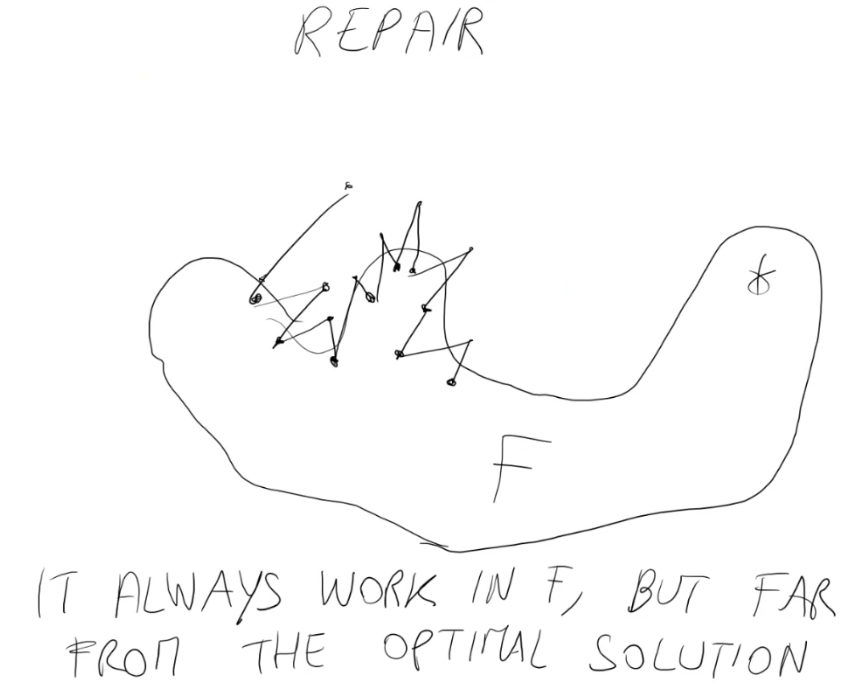 REPAIR
F
IT ALWAYS WORK IN F, BUT FAR
FROM THE OPTIMAL SOLUTION